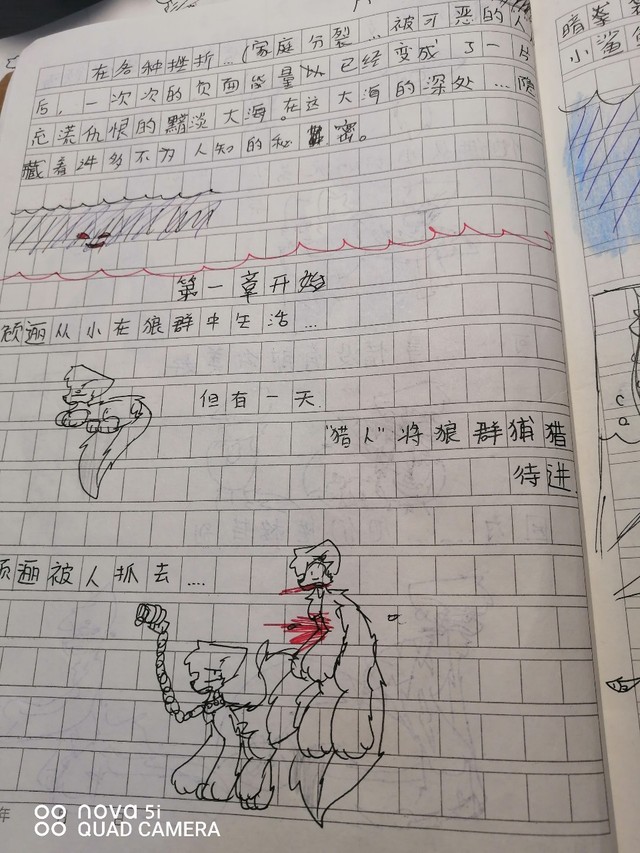 在各种挫折…(家庭分裂…被可恶的人
后,一次次的负面能量以已经变成了一片
充满仇恨的黯淡大海。在这大海的深处…隐
藏着许多不为人知的秘密。
第一章开始
顾迺从小在狼群中生活…
但有一天.
"猎人"将狼群捕猎
待进
迺被人抓去….
暗拳
小鲨
年 月 日
nova 5i
QUAD CAMERA